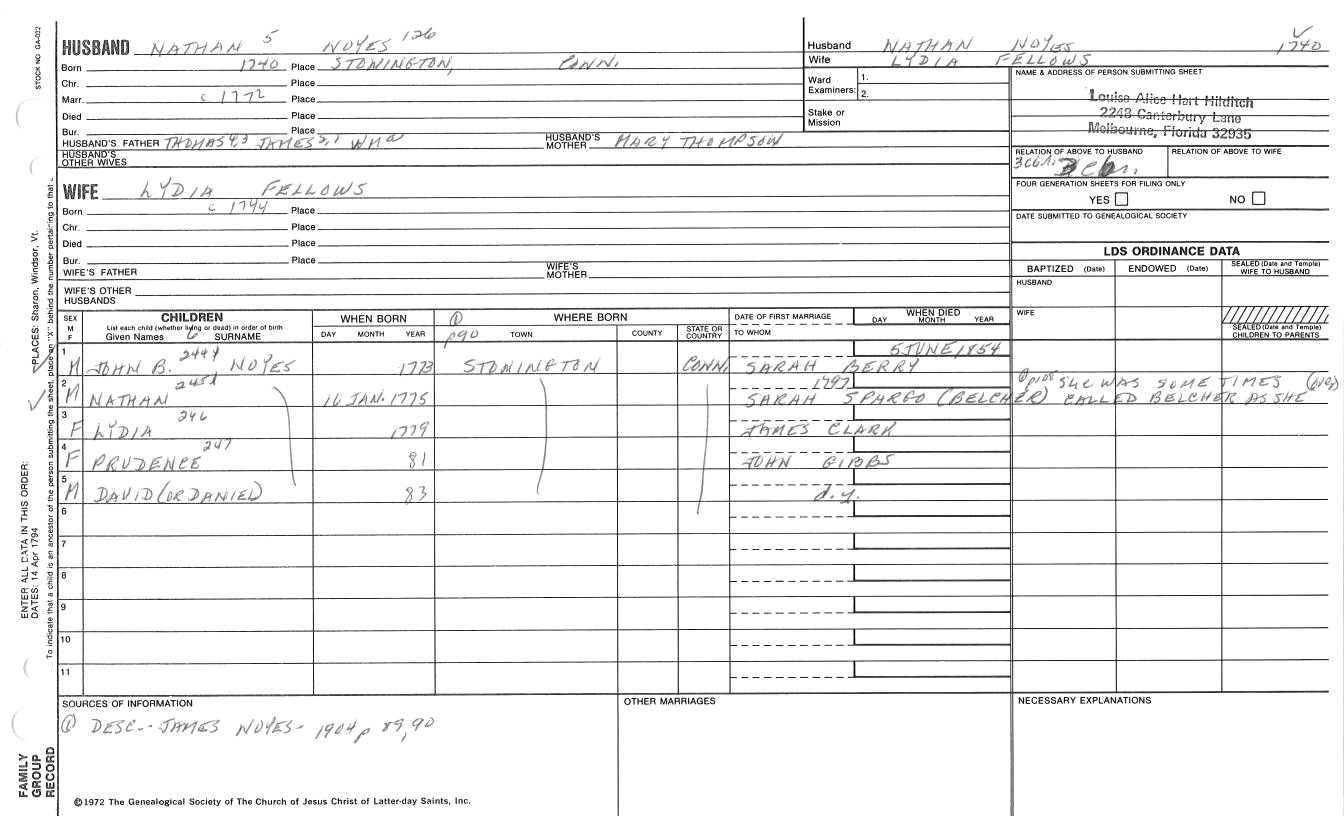 HUSBAND NATHAN 5 NOYES 126
Born 1740 Place STONINGTON, CONN.
Chr. Place
Marr. c 1772 Place
Died Place
Bur. Place
HUSBAND'S FATHER THOMAS 4,3 JAMES 2,1 WM HUSBAND'S MOTHER MARY THOMPSON
HUSBAND'S OTHER WIVES
Husband NATHAN NOYES 1740
Wife LYDIA FELLOWS
Ward Examiners: 1.
2.
Stake or Mission
NAME & ADDRESS OF PERSON SUBMITTING SHEET
Louise Alice Hart Hilditch
2248 Canterbury Lane
Melbourne, Florida 32935
RELATION OF ABOVE TO HUSBAND RELATION OF ABOVE TO WIFE
FOUR GENERATION SHEETS FOR FILING ONLY
YES NO
DATE SUBMITTED TO GENEALOGICAL SOCIETY
WIFE LYDIA FELLOWS
Born c 1794 Place
Chr. Place
Died Place
Bur. Place
WIFE'S FATHER WIFE'S MOTHER
WIFE'S OTHER HUSBANDS
LDS ORDINANCE DATA
BAPTIZED (Date) ENDOWED (Date) SEALED (Date and Temple) WIFE TO HUSBAND
HUSBAND
WIFE
SEALED (Date and Temple) CHILDREN TO PARENTS
SEX M F
CHILDREN WHEN BORN ① WHERE BORN DATE OF FIRST MARRIAGE WHEN DIED
List each child (whether living or dead) in order of birth
Given Names 6 SURNAME DAY MONTH YEAR p90 TOWN COUNTY STATE OR COUNTRY TO WHOM DAY MONTH YEAR
1 M JOHN B. 244 NOYES 1773 STONINGTON CONN. SARAH BERRY 5 JUNE, 1854
2 M NATHAN 245 16 JAN. 1775 1797 SARAH SPARGO (BELCHER) SHE WAS SOMETIMES (over) CALLED BELCHER AS SHE
3 F LYDIA 246 1779 JAMES CLARK
4 F PRUDENCE 247 81 JOHN GIBBS
5 M DAVID (OR DANIEL) 83 d.y.
6
7
8
9
10
11
SOURCES OF INFORMATION
① DESC.- JAMES NOYES- 1904 p 89,90
OTHER MARRIAGES
NECESSARY EXPLANATIONS
©1972 The Genealogical Society of The Church of Jesus Christ of Latter-day Saints, Inc.
STOCK NO GA-022
PLACES: Sharon, Windsor, Vt.
ENTER ALL DATA IN THIS ORDER:
DATES: 14 Apr 1794
To indicate that a child is an ancestor of the person submitting the sheet, place an "X" behind the number pertaining to that
FAMILY GROUP RECORD